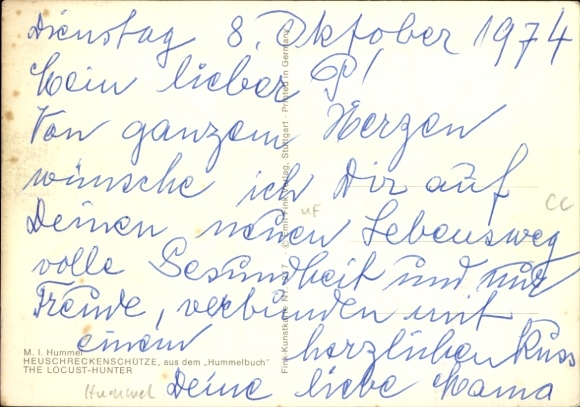 Dienstag 8. Oktober 1974
Mein lieber P!
Von ganzem Herzen
wünsche ich Dir auf
Deinen neuen Lebensweg
volle Gesundheit und nur
Freude, verbunden mit
einem herzlichen Kuss
Deine liebe Mama
M. I. Hummel
HEUSCHRECKENSCHÜTZE, aus dem „Hummelbuch"
THE LOCUST-HUNTER
Hummel
CC
Emil Fink Verlag, Stuttgart - Printed in Germany